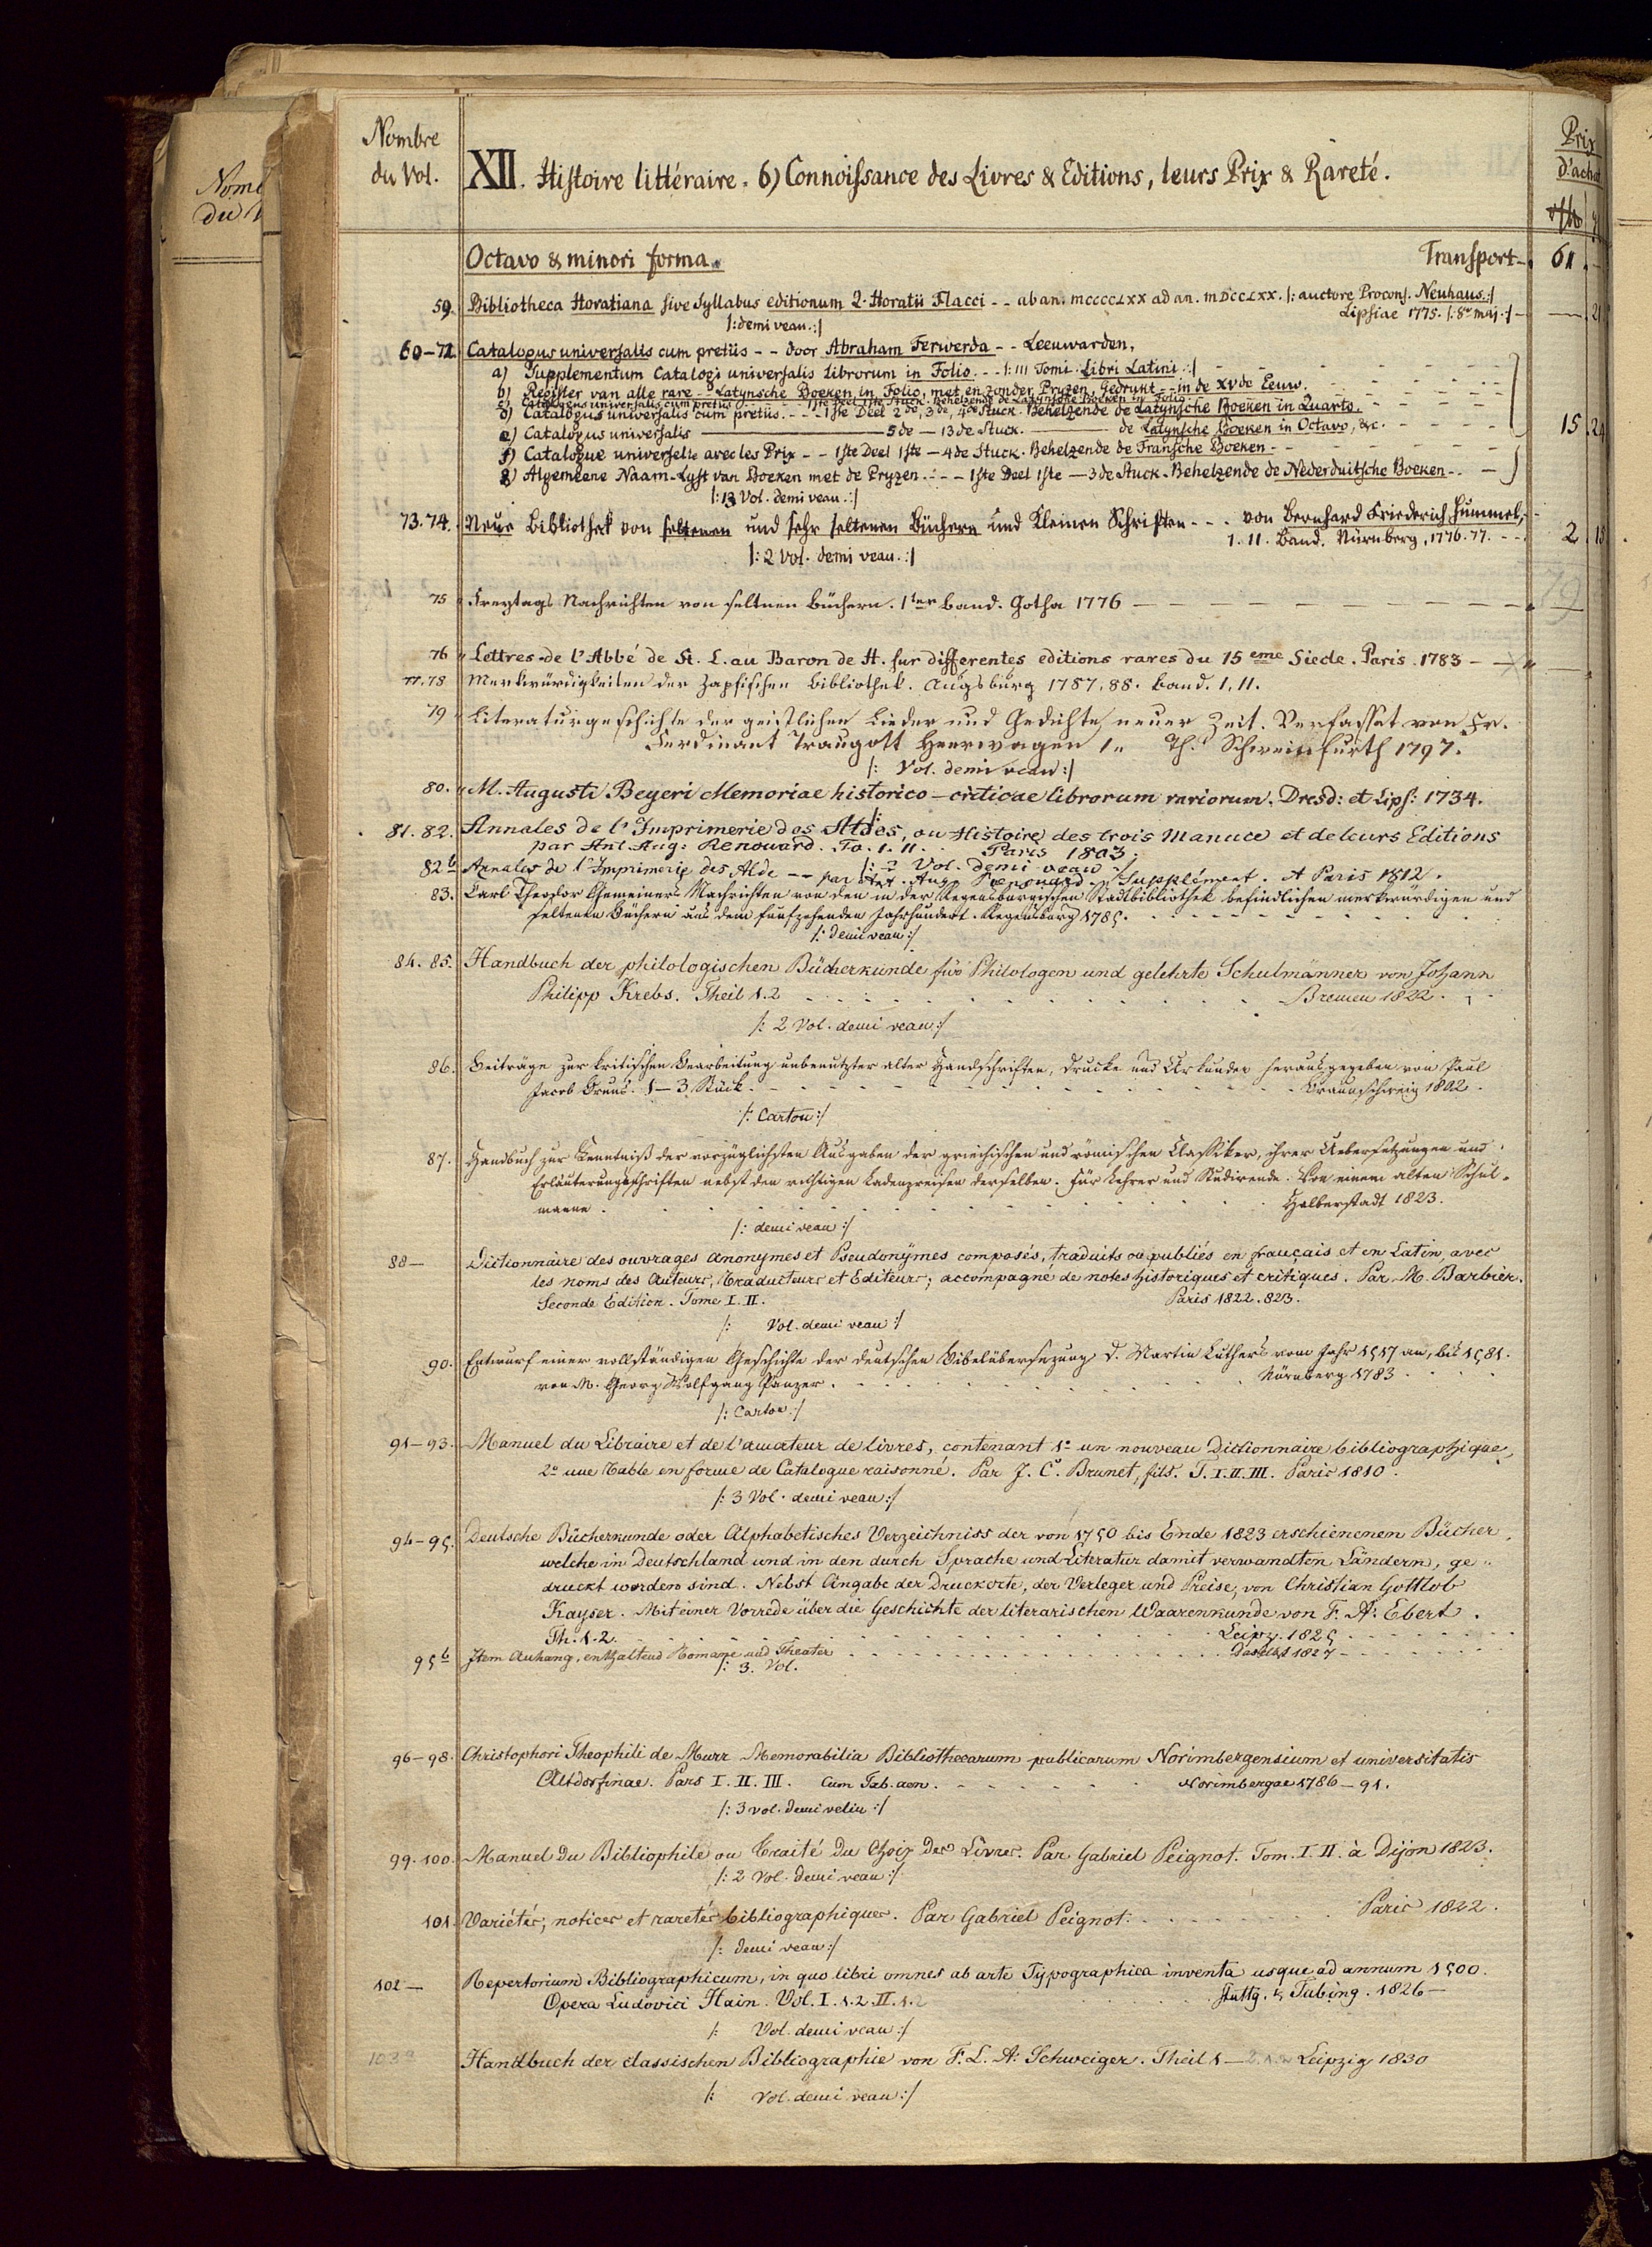 Nombre
du Vol.
XII. Histoire littéraire. 6) Connoissance des Livres & Editions, leurs Prix & Rareté.
Prix
d'achat
Octavo & minori forma. Transport - 61.
59. Bibliotheca Horatiana sive Syllabus editionum Q. Horatii Flacci - - ab an. MCCCCLXX ad an. MDCCLXX. /: auctore Procons. Neuhaus :/
/: demi veau :/ Lipsiae 1775. /: 8° maj. :/ - 21
60-72. Catalogus universalis cum pretiis - - door Abraham Ferwerda - - Leeuwarden,
a) Supplementum Catalogi universalis Librorum in Folio - - /: III Tomi. Libri Latini :/
b) Register van alle rare - - Latynsche Boeken in Folio, met en zonder Pryzen, Gedrukt - - in de XVde Eeuw.
c) Catalogus universalis cum pretiis - - 1ste Deel 1ste Stuck. Behelzende de Latynsche Boeken in Folio
d) Catalogus universalis cum pretiis. - - 1ste Deel 2de, 3de, 4de Stuck. Behelzende de Latynsche Boeken in Quarto.
e) Catalogus universalis — 5de — 13de Stuck. — de Latynsche Boeken in Octavo, &c. 15. 24
f) Catalogue universelle avec les Prix - - 1ste Deel 1ste — 4de Stuck. Behelzende de Fransche Boeken
g) Algemeene Naam-Lyst van Boeken met de Pryzen - - 1ste Deel 1ste — 3de Stuck. Behelzende de Nederduitsche Boeken
/: 13 Vol. demi veau :/
73.74. Neue Bibliothek von seltenen und sehr seltenen Büchern und kleinen Schriften - - - von Bernhard Friederich Hummel,
I. II. Band. Nürnberg, 1776. 77. - - 2
/: 2 Vol. demi veau :/
75 Freytags Nachrichten von seltnen Büchern. 1ter Band. Gotha 1776
76 Lettres de l'Abbé de St. L. au Baron de H. sur differentes editions rares du 15eme Siecle. Paris. 1783
77.78 Merkwürdigkeiten der Zapfischen Bibliothek. Augsburg 1787. 88. Band. I, II.
79 Literaturgeschichte der geistlichen Lieder und Gedichte neuer Zeit. Verfasset von Fr.
Ferdinant Traugott Heerwagen 1. Th. Schweinfurth 1797.
/: Vol. demi veau :/
80. M. Augusti Beyeri Memoriae historico-criticae librorum rariorum. Dresd: et Lips: 1734.
81. 82. Annales de l'Imprimerie des Aldes, ou Histoire des trois Manuce et de leurs Editions
par Ant. Aug: Renouard. To. I. II. Paris 1803.
/: 2 Vol. demi veau :/
82b Annales de l'Imprimerie des Alde - - par Ant. Aug. Renouard. Supplément. A Paris 1812.
83. Carl Theodor Gemeiners Nachrichten von den in der Regensburgischen Stadtbibliothek befindlichen merkwürdigen und
seltenen Büchern aus dem funfzehenden Jahrhundert. Regensburg 1785.
/: demi veau :/
84. 85. Handbuch der philologischen Bücherkunde für Philologen und gelehrte Schulmänner von Johann
Philipp Krebs. Theil 1. 2 Bremen 1822.
/: 2 Vol. demi veau :/
86. Beiträge zur kritischen Bearbeitung unbenutzter alter Handschriften, Drucke und Urkunden herausgegeben von Paul
Jacob Bruns. 1-3. Stück. Braunschweig 1802.
/: Carton :/
87. Handbuch zur Kenntniß der vorzüglichsten Ausgaben der griechischen und römischen Classiker, ihrer Uebersetzungen und
Erläuterungsschriften nebst den richtigen Ladenpreisen derselben. Für Lehrer und Studirende. Von einem alten Schul-
manne. Halberstadt 1823.
/: demi veau :/
88 — Dictionnaire des ouvrages anonymes et Pseudonymes composés, traduits ou publiés en français et en Latin, avec
les noms des Auteurs, Traducteurs et Editeurs; accompagné de notes historiques et critiques. Par M. Barbier.
Seconde Edition. Tome I. II. Paris 1822. 823.
/: Vol. demi veau :/
90. Entwurf einer vollständigen Geschichte der deutschen Bibelübersezung D. Martin Luthers vom Jahr 1517 an, bis 1581.
von M. Georg Wolfgang Panzer. Nürnberg 1783
/: Carton :/
91-93. Manuel du Libraire et de l'amateur de livres, contenant 1° un nouveau Dictionnaire bibliographique,
2° une Table en forme de Catalogue raisonné. Par J. C. Brunet, fils. T. I. II. III. Paris 1810.
/: 3 Vol. demi veau :/
94-95. Deutsche Bücherkunde oder Alphabetisches Verzeichniss der von 1750 bis Ende 1823 erschienenen Bücher,
welche in Deutschland und in den durch Sprache und Literatur damit verwandten Ländern, ge-
druckt worden sind. Nebst Angabe der Druckorte, der Verleger und Preise, von Christian Gottlob
Kayser. Mit einer Vorrede über die Geschichte der literarischen Waarenkunde von F. A. Ebert.
Th. 1. 2. Leipz. 1825
95b Item Anhang, enthaltend Romane und Theater Daselbst 1827
/: 3. Vol.
96-98. Christophori Theophili de Murr Memorabilia Bibliothecarum publicarum Norimbergensium et universitatis
Altdorfinae. Pars I. II. III. Cum Tab. aen. Norimbergae 1786-91.
/: 3 vol. demi velin :/
99. 100. Manuel du Bibliophile ou Traité du Choix des Livres. Par Gabriel Peignot. Tom. I. II. à Dijon 1823.
/: 2 Vol. demi veau :/
101. Variétés, notices et raretés bibliographiques. Par Gabriel Peignot. Paris 1822.
/: demi veau :/
102 — Repertorium Bibliographicum, in quo libri omnes ab arte Typographica inventa usque ad annum 1500.
Opera Ludovici Hain. Vol. I. 1. 2. II. 1. 2 Stuttg. & Tubing. 1826 —
/: Vol. demi veau :/
103 Handbuch der classischen Bibliographie von F. L. A. Schweiger. Theil 1 — Leipzig 1830
/: Vol. demi veau :/